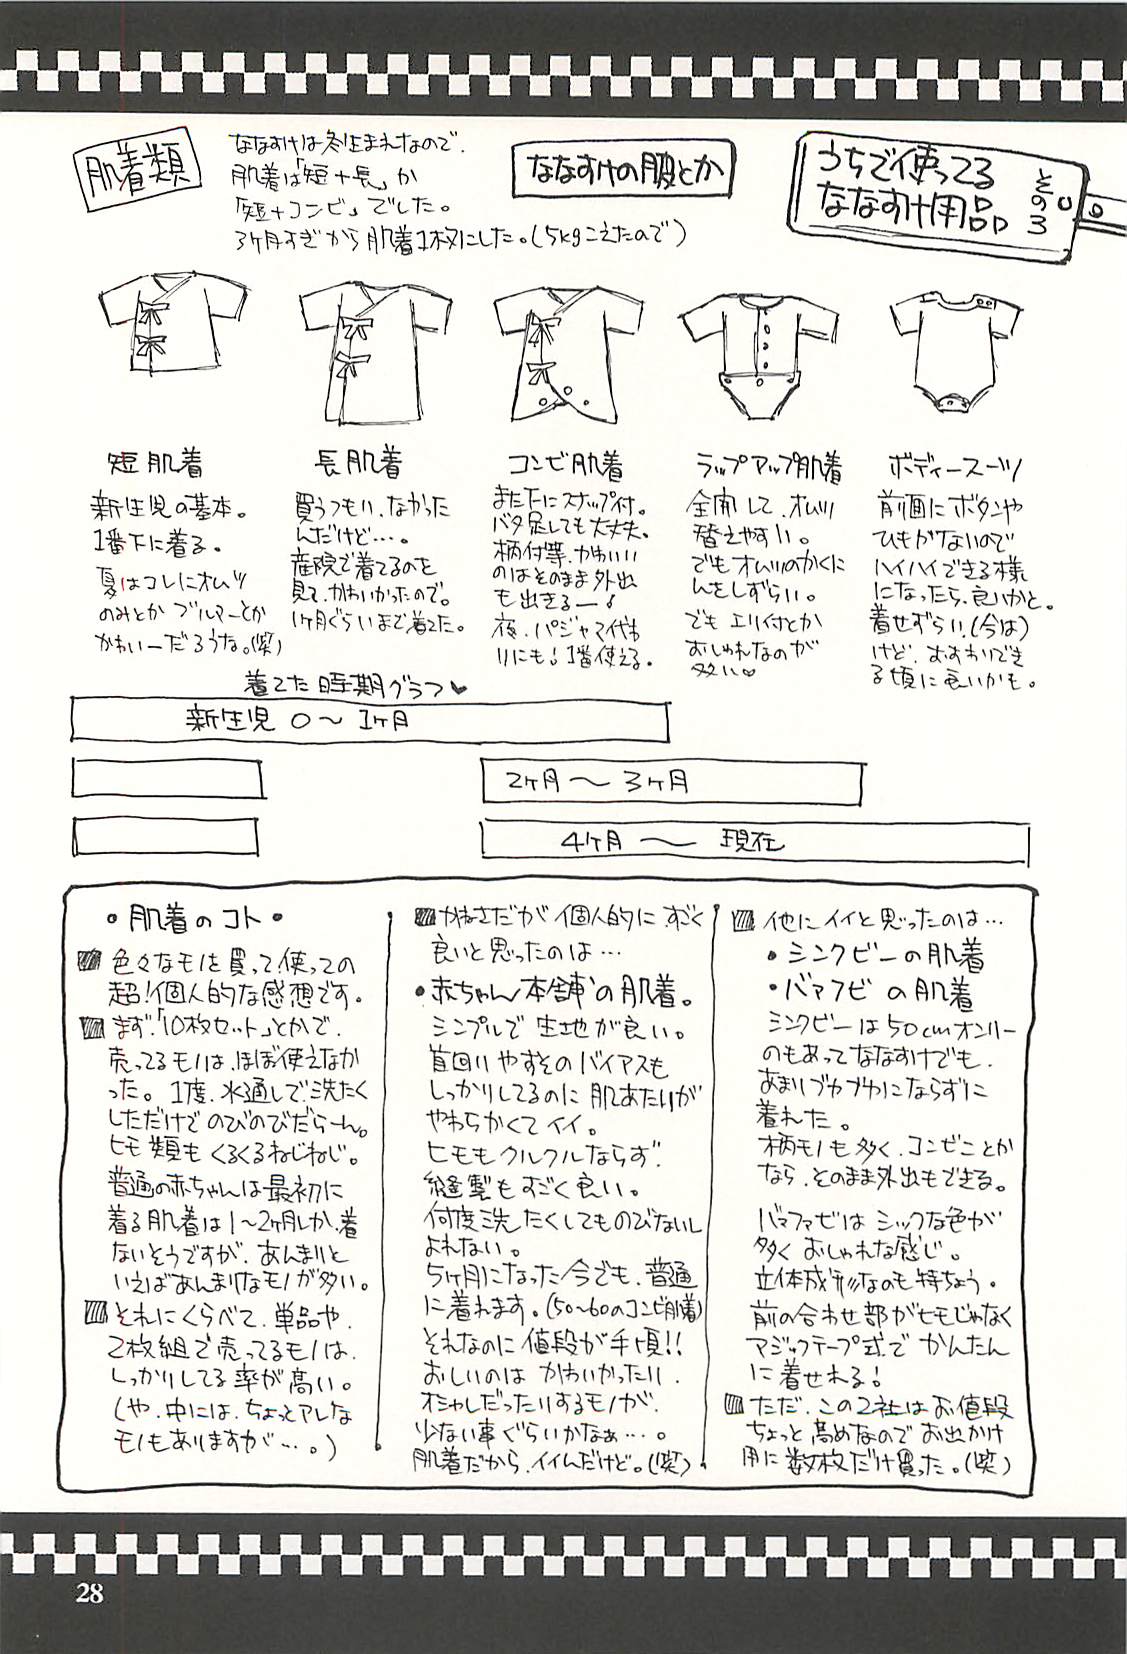 うちで使ってる
ななすけ用品
その3
ななすけの服とか
肌着類
ななすけは冬生まれなので、
肌着は「短+長」か
「短+コンビ」でした。
3ヶ月すぎから肌着1枚にした。(5kgこえたので)
短肌着
新生児の基本。
1番下に着る。
夏はコレにオムツ
のみとかブルマーとか
かわいーだろうな。(笑)
長肌着
買うつもり、なかった
んだけど…。
産院で着てるのを
見て、かわいかったので。
1ヶ月ぐらいまで着てた。
コンビ肌着
また下にスナップ付。
バタ足しても大丈夫。
柄付等、かわいい
のはそのまま外出
も出きるー!
夜、パジャマ代わ
りにも!1番使える。
ラップアップ肌着
全開して、オムツ
替えやすい。
でもオムツのかくに
んをしずらい。
でもエリ付とか
おしゃれなのが
多い♡
ボディースーツ
前面にボタンや
ひもがないので
ハイハイできる様
になったら、良いかと。
着せずらい、(今は)
けど、おすわりでき
る頃に良いかも。
着てた時期グラフ♥
新生児 0〜1ヶ月
2ヶ月〜3ヶ月
4ヶ月〜現在
・肌着のコト・
色々なモノを買って使っての
超!個人的な感想です。
まず、「10枚セット」とかで、
売ってるモノは、ほぼ使えなか
った。1度、水通しで洗たく
しただけでのびのびだらーん。
ヒモ類もくるくるねじねじ。
普通の赤ちゃんは最初に
着る肌着は1〜2ヶ月しか、着
ないそうですが、あんまりと
いえばあんまりなモノが多い。
それにくらべて、単品や、
2枚組で売ってるモノは、
しっかりしてる率が高い。
(や、中には、ちょっとアレな
モノもありますが…。)
かねさだが個人的にすごく
良いと思ったのは…
・赤ちゃん本舗の肌着。
シンプルで生地が良い。
首回りやすそのバイアスも
しっかりしてるのに肌あたりが
やわらかくてイイ。
ヒモもクルクルならず、
縫製もすごく良い。
何度洗たくしてものびないし
よれない。
5ヶ月になった今でも、普通
に着れます。(50〜60のコンビ肌着)
それなのに値段が手頃!!
おしいのはかわいかったり、
オシャレだったりするモノが、
少ない事ぐらいかなぁ…。
肌着だから、イイんだけど。(笑)
他にイイと思ったのは…
・シンクビーの肌着
・バァフビの肌着
シンクビーは50cmオンリー
のもあってななすけでも、
あまりブカブカにならずに
着れた。
柄モノも多く、コンビことか
なら、そのまま外出もできる。
バァファビはシックな色が
多くおしゃれな感じ。
立体成形なのも特ちょう。
前の合わせ部がヒモじゃなく
マジックテープ式でかんたん
に着せれる!
ただ、この2社はお値段
ちょっと高めなのでお出かけ
用に数枚だけ買った。(笑)
28